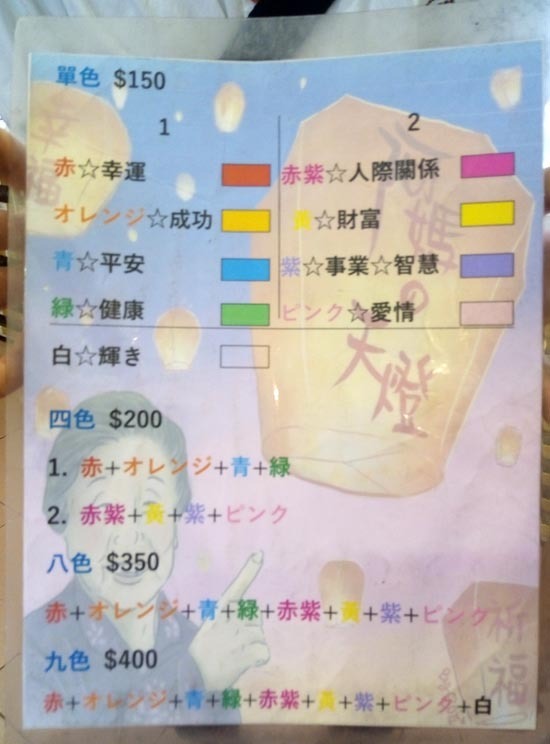 單色 $150
1
2
赤☆幸運
赤紫☆人際關係
オレンジ☆成功
黃☆財富
青☆平安
紫☆事業☆智慧
緑☆健康
ピンク☆愛情
白☆輝き
四色 $200
1. 赤+オレンジ+青+緑
2. 赤紫+黃+紫+ピンク
八色 $350
赤+オレンジ+青+緑+赤紫+黃+紫+ピンク
九色 $400
赤+オレンジ+青+緑+赤紫+黃+紫+ピンク+白
幸福
媽の天燈
祈福